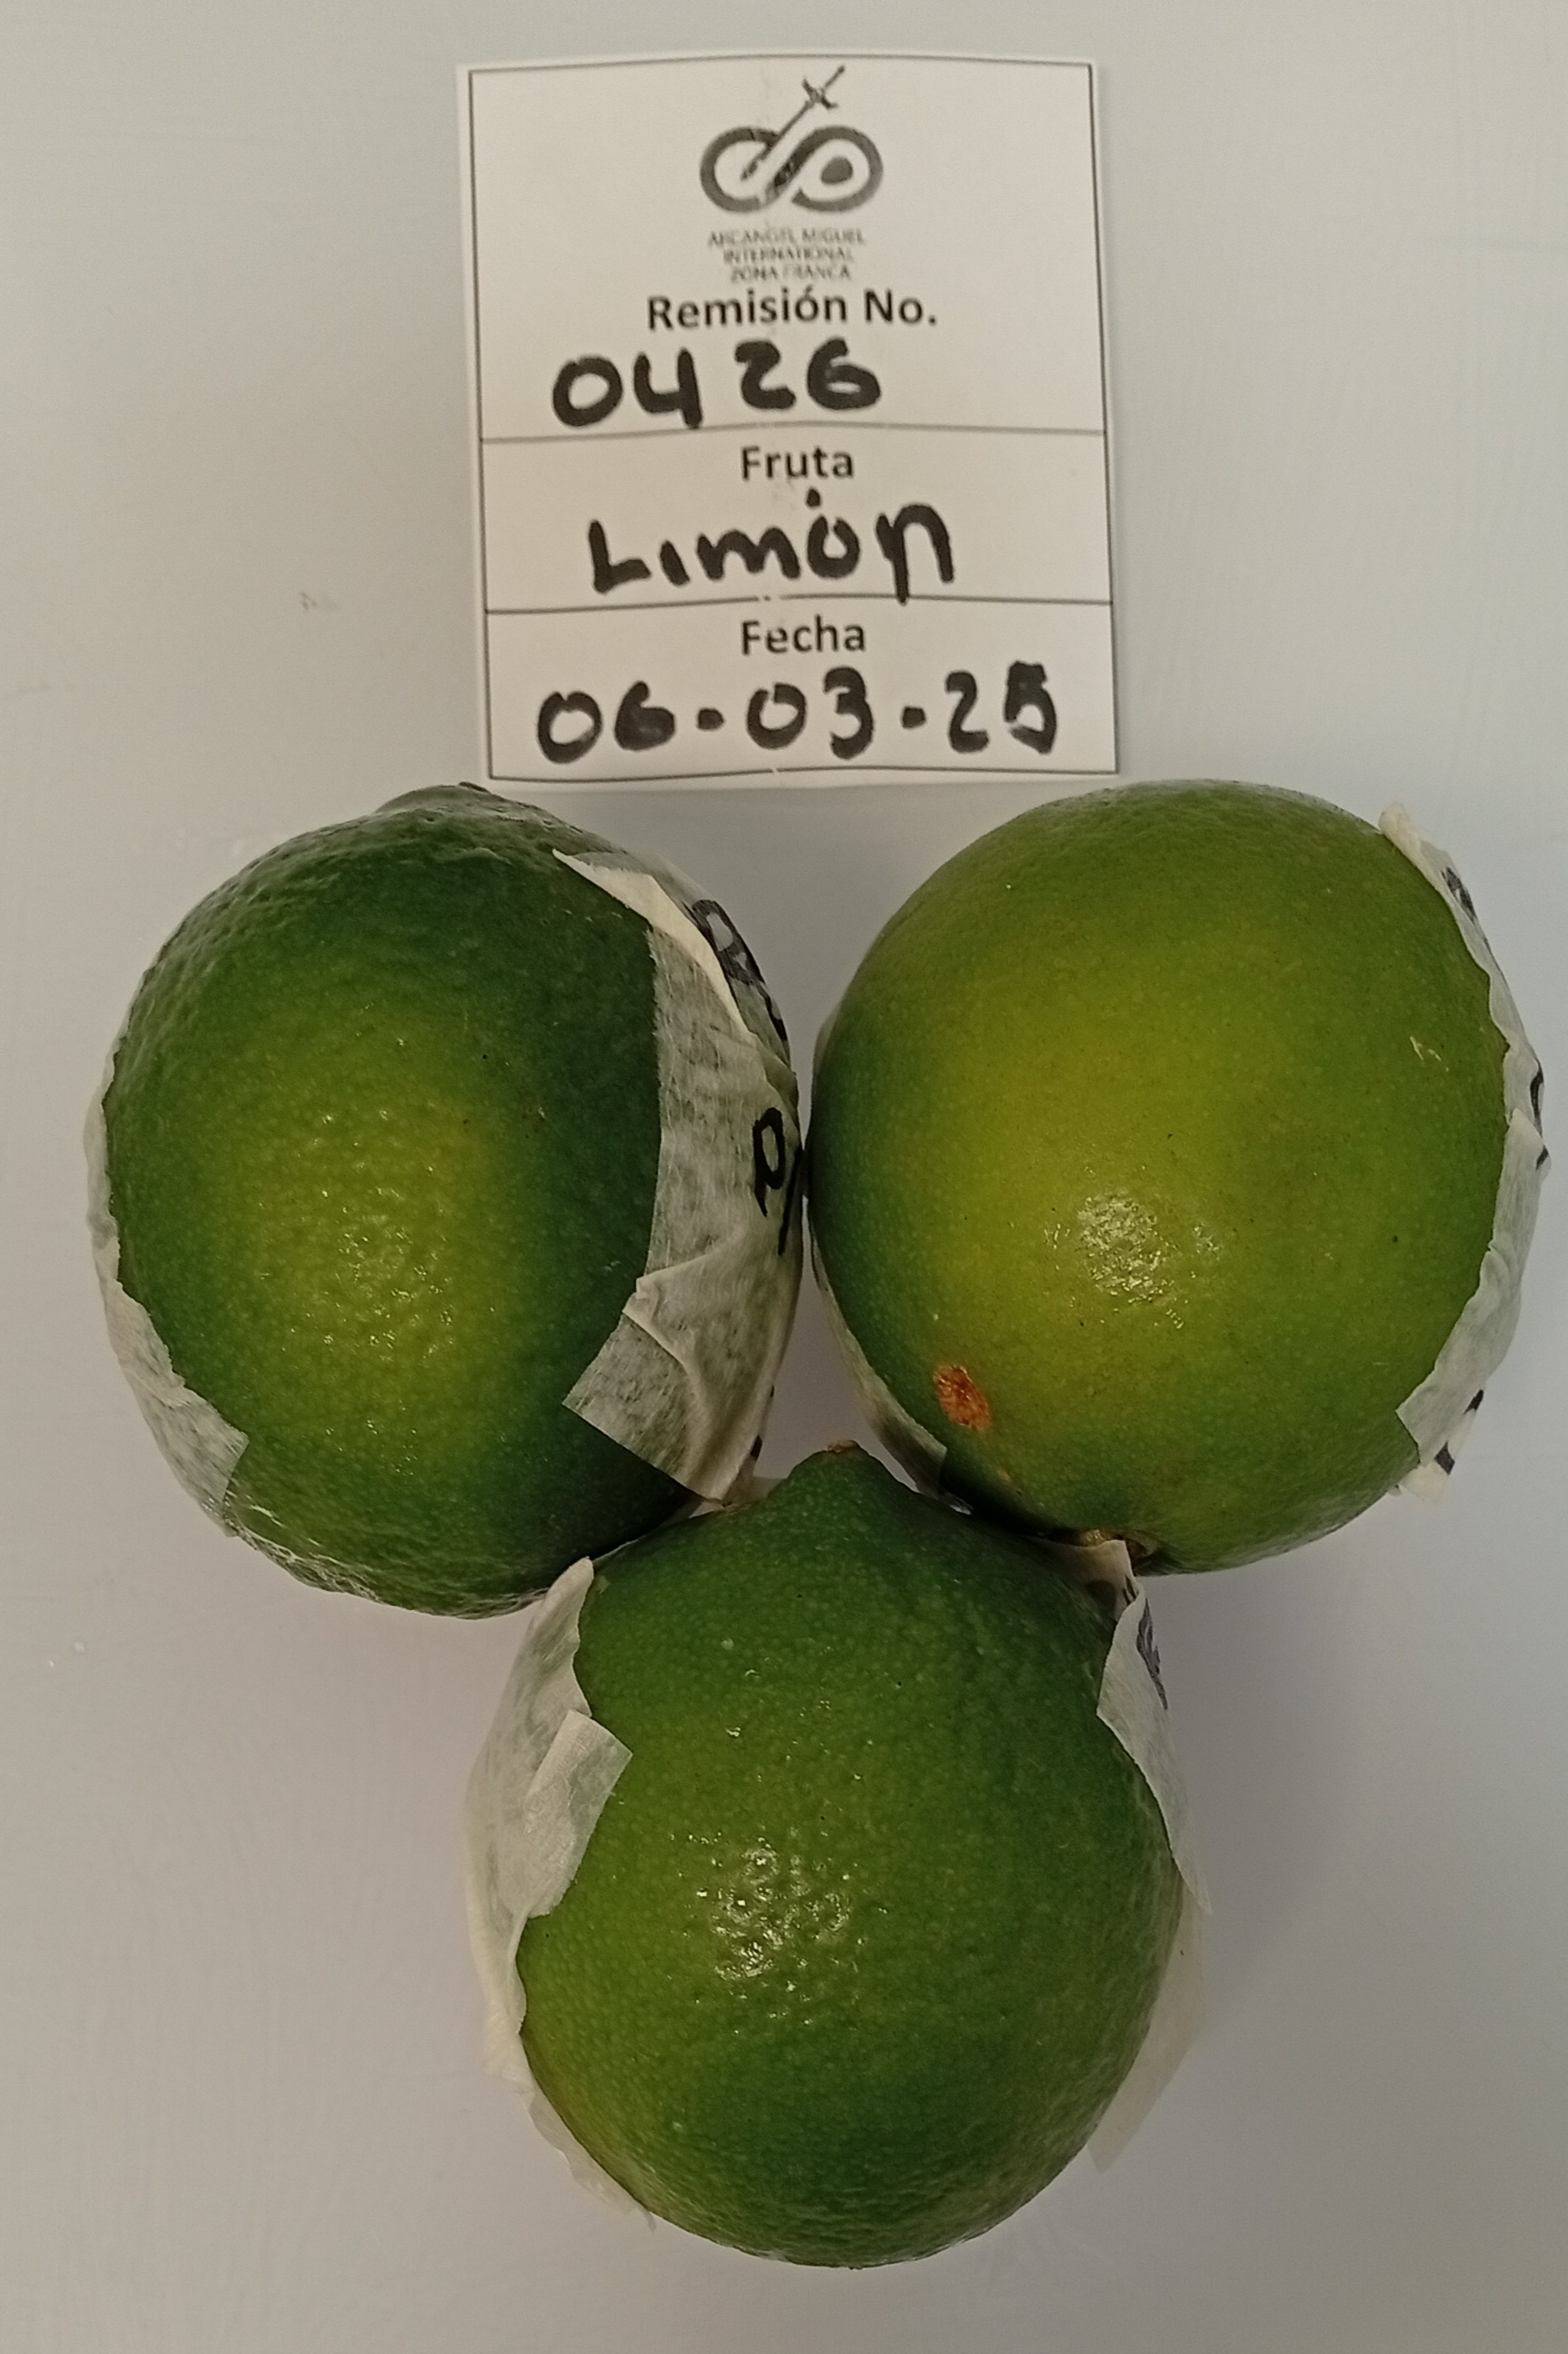 ARCANGEL MIGUEL
INTERNATIONAL
ZONA FRANCA
Remisión No.
0426
Fruta
Limón
Fecha
06-03-25